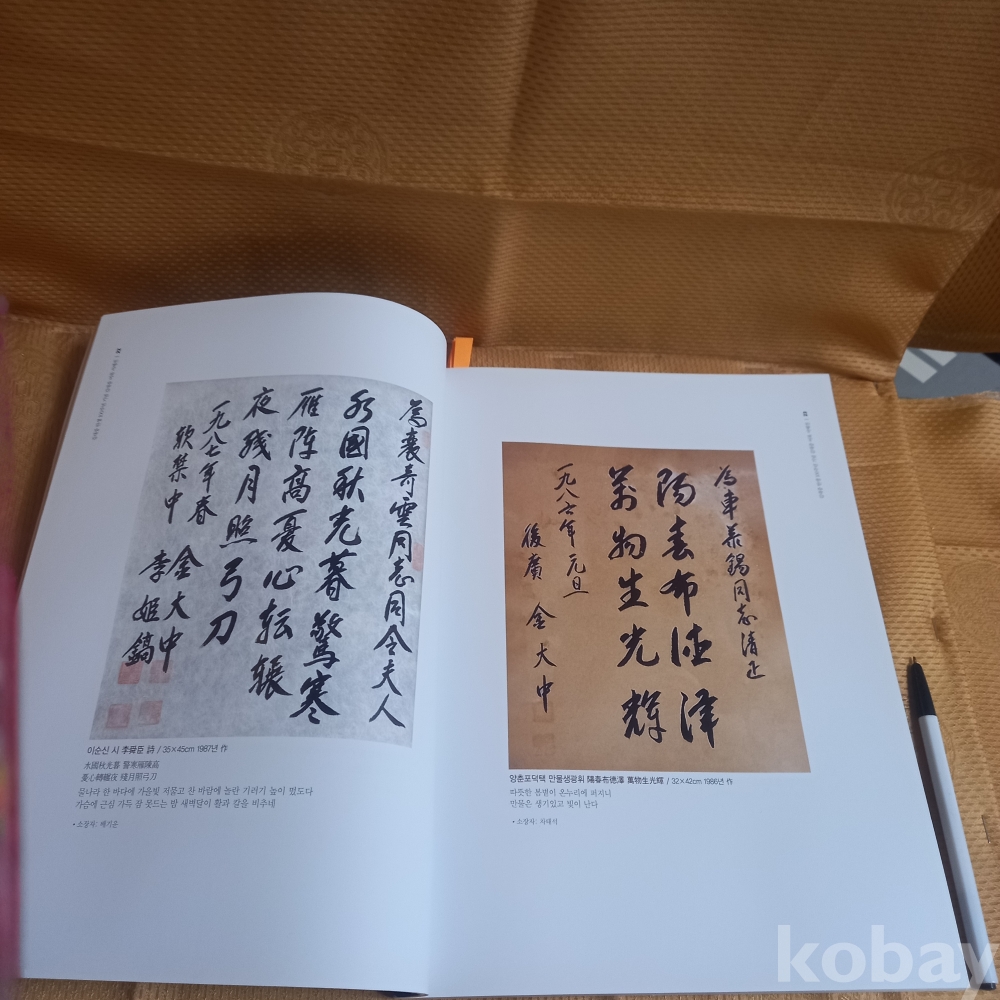 為裵奇雲同志同令夫人
水國秋光暮驚寒
雁陣高憂心転輾
夜残月照弓刀
一九八七年春
金大中
李姬鎬
이순신 시 李舜臣 詩 / 35×45cm 1987년 作
水國秋光暮 驚寒雁陳高
憂心轉輾夜 殘月照弓刀
물나라 한 바다에 가을빛 저물고 찬 바람에 놀란 기러기 높이 떴도다
가슴에 근심 가득 잠 못드는 밤 새벽달이 활과 칼을 비추네
• 소장자: 배기운
為車泰錫同志清正
陽春布德澤
萬物生光輝
一九八六年 元旦
後廣 金大中
양춘포덕택 만물생광휘 陽春布德澤 萬物生光輝 / 32×42cm 1986년 作
따뜻한 봄볕이 온누리에 퍼지니
만물은 생기있고 빛이 난다
• 소장자: 차태석
kobay